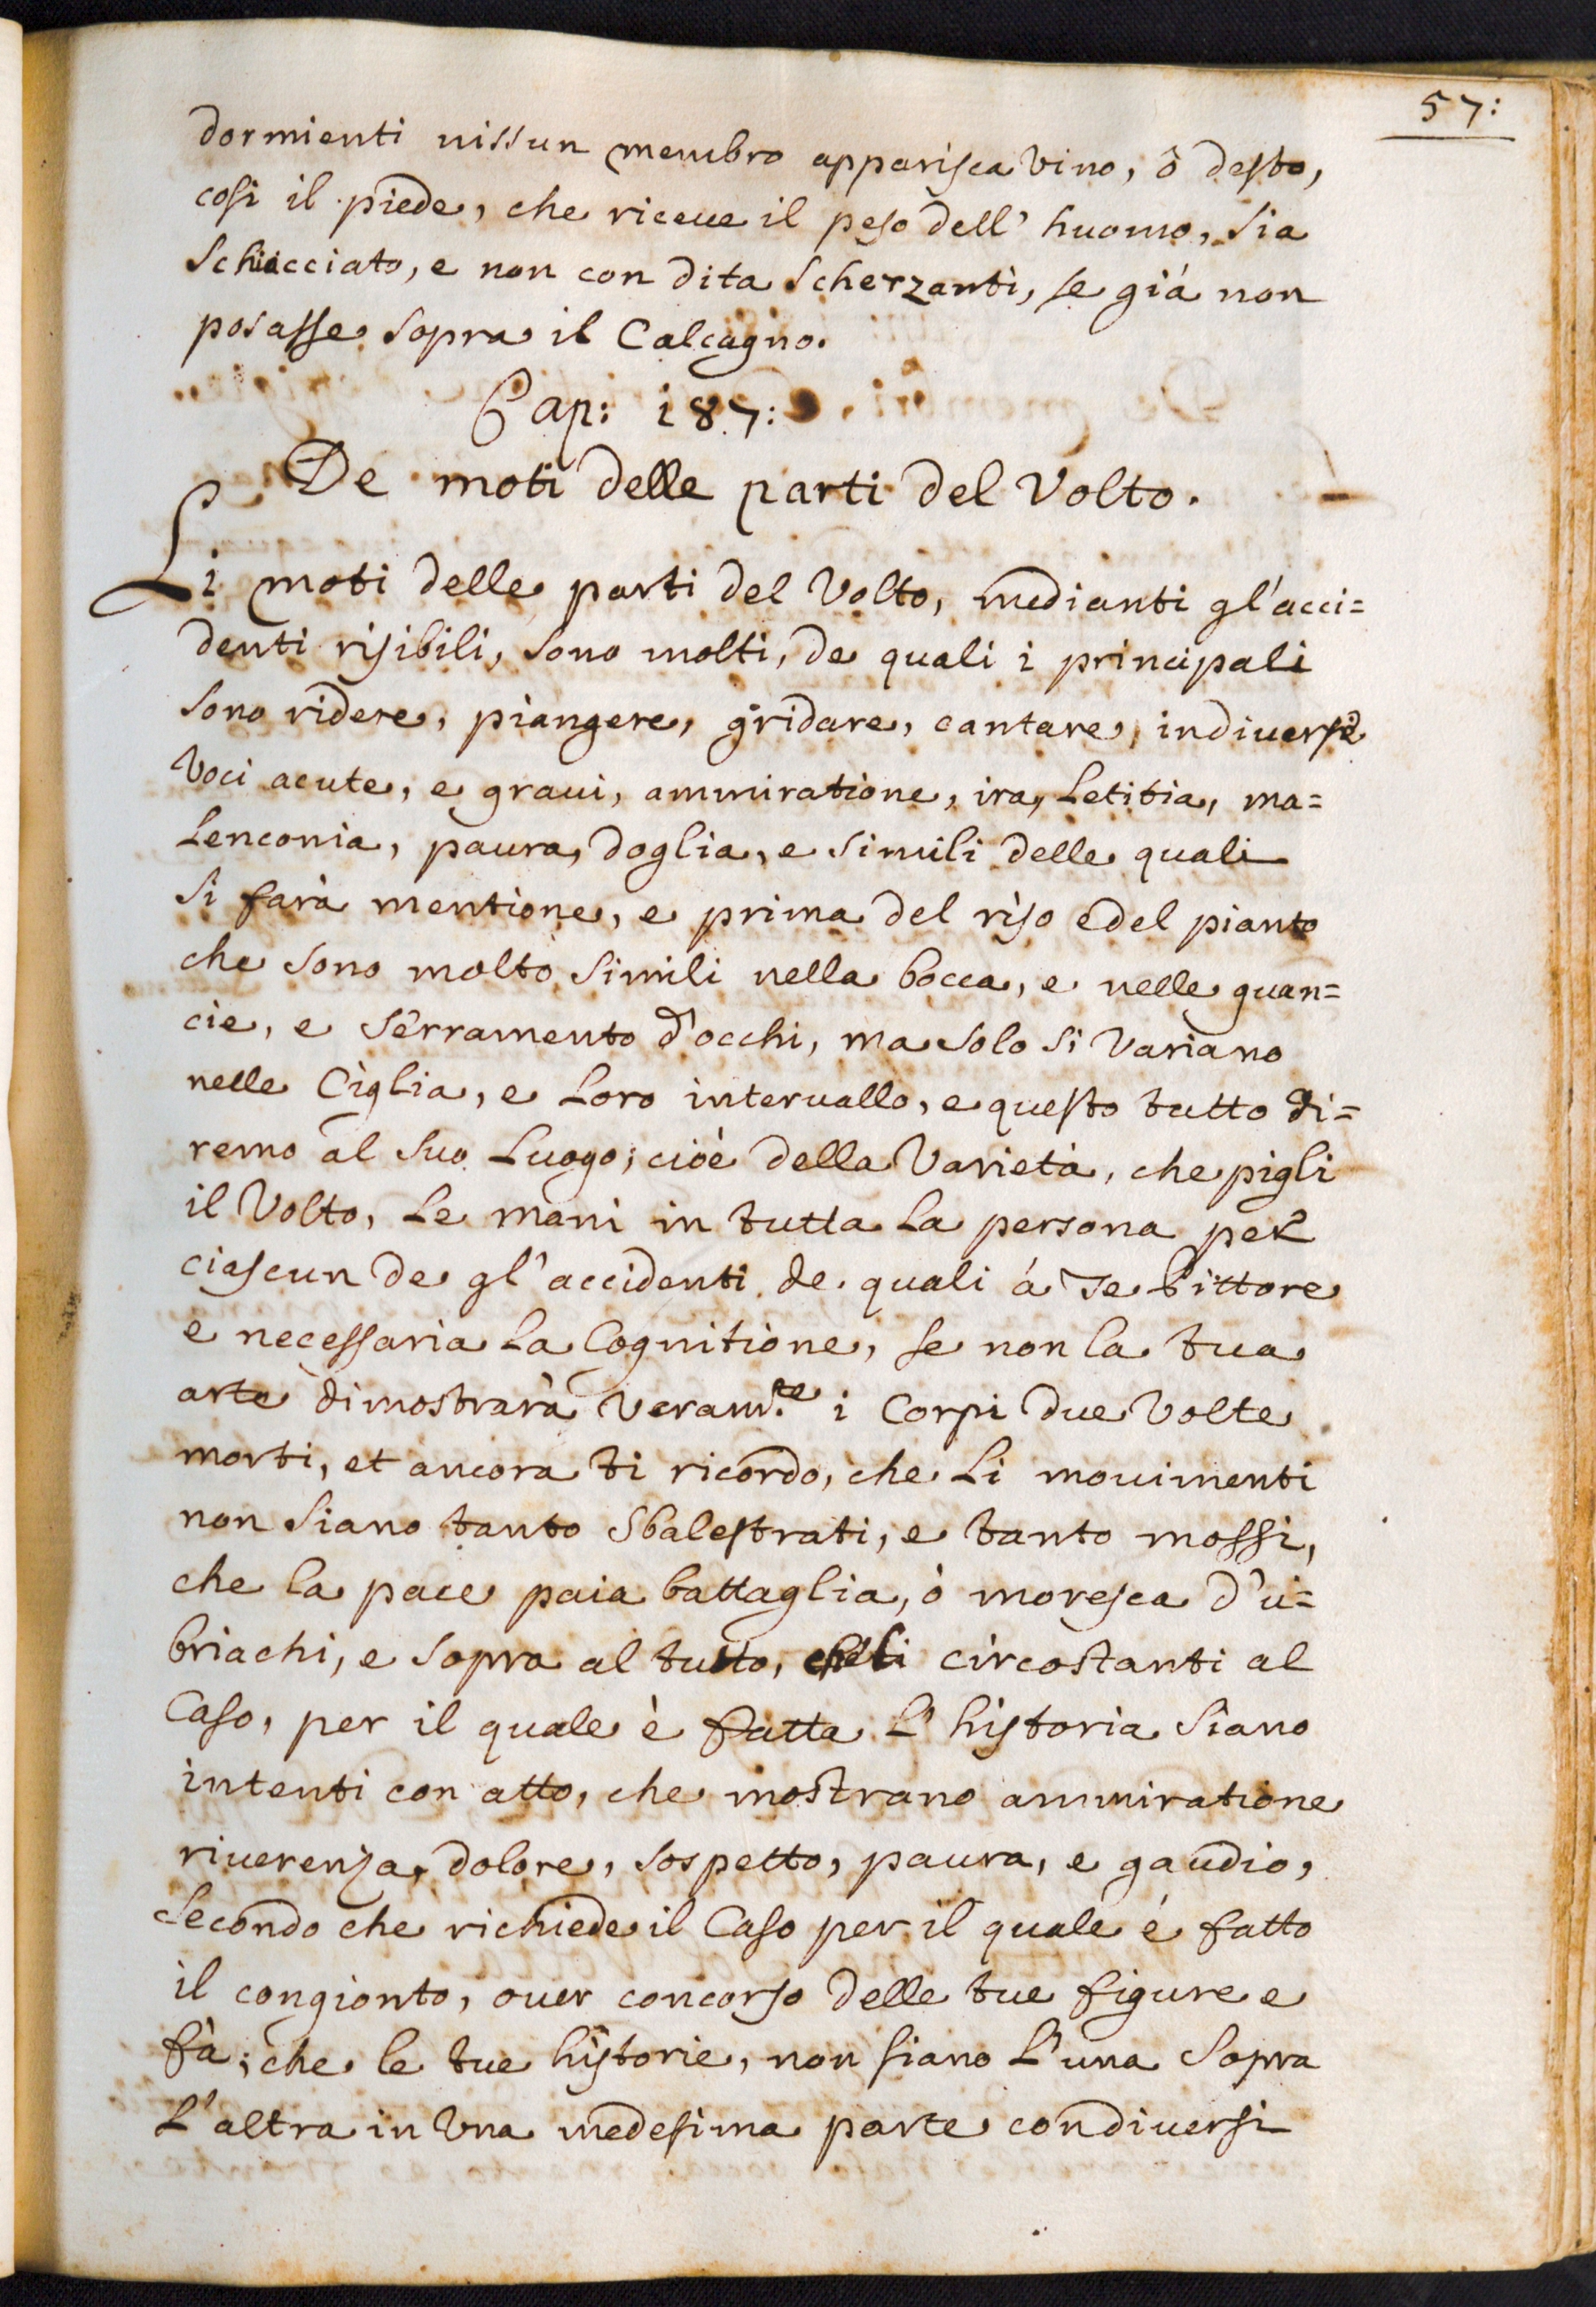 57:
dormienti nissun membro apparisca vino, ò desto,
cosi il piede, che riceue il peso dell' huomo, sia
schiacciato, e non con dita scherzanti, se già non
posasse sopra il Calcagno.
Cap: 187:
De moti delle parti del Volto.
Li moti delle parti del Volto, medianti gl'acci=
denti risibili, sono molti, de quali i principali
sono ridere, piangere, gridare, cantare, indiuerse
Voci acute, e graui, ammiratione, ira, Letitia, ma=
Lenconia, paura, doglia, e simili delle quali
si farà mentione, e prima del riso e del pianto
che sono molto simili nella bocca, e nelle guan=
cie, e serramento d'occhi, ma solo si Variano
nelle Ciglia, e Loro interuallo, e questo tutto di=
remo al suo Luogo; cioè della Varietà, che pigli
il Volto, Le mani in tutta La persona per
ciascun de gl'accidenti de quali à te Pittore
e necessaria La Cognitione, se non la tua
arte dimostrarà Veram.te i Corpi due Volte
morti, et ancora ti ricordo, che Li mouimenti
non siano tanto sbalestrati, e tanto mossi,
che la pace paia battaglia, ò moresca d'u=
briachi, e sopra al tutto, che li circostanti al
Caso, per il quale è fatta L'historia siano
intenti con atto, che mostrano ammiratione
riuerenza, dolore, sospetto, paura, e gaudio,
secondo che richiede il Caso per il quale è fatto
il congionto, ouer concorso delle tue figure e
fà; che le tue historie, non siano L'una sopra
L'altra in Vna medesima parte condiuersi